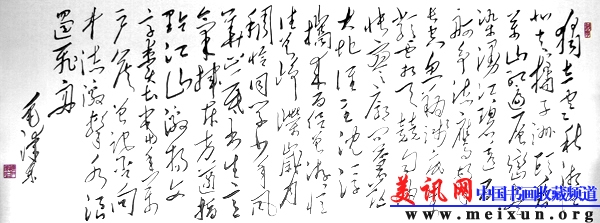 独立寒秋湘江
北去橘子洲头看
万山红遍层林尽
染漫江碧透百
舸争流鹰击
长空鱼翔浅底万
类霜天竞自由
怅寥廓问苍茫
大地谁主沉浮
携来百侣曾游忆
往昔峥嵘岁月
稠恰同学少年风
华正茂书生意
气挥斥方遒指
点江山激扬文
字粪土当年万
户侯曾记否向
中流击水浪
遏飞舟
毛泽东
美讯网 中国书画收藏频道
www.meixun.org